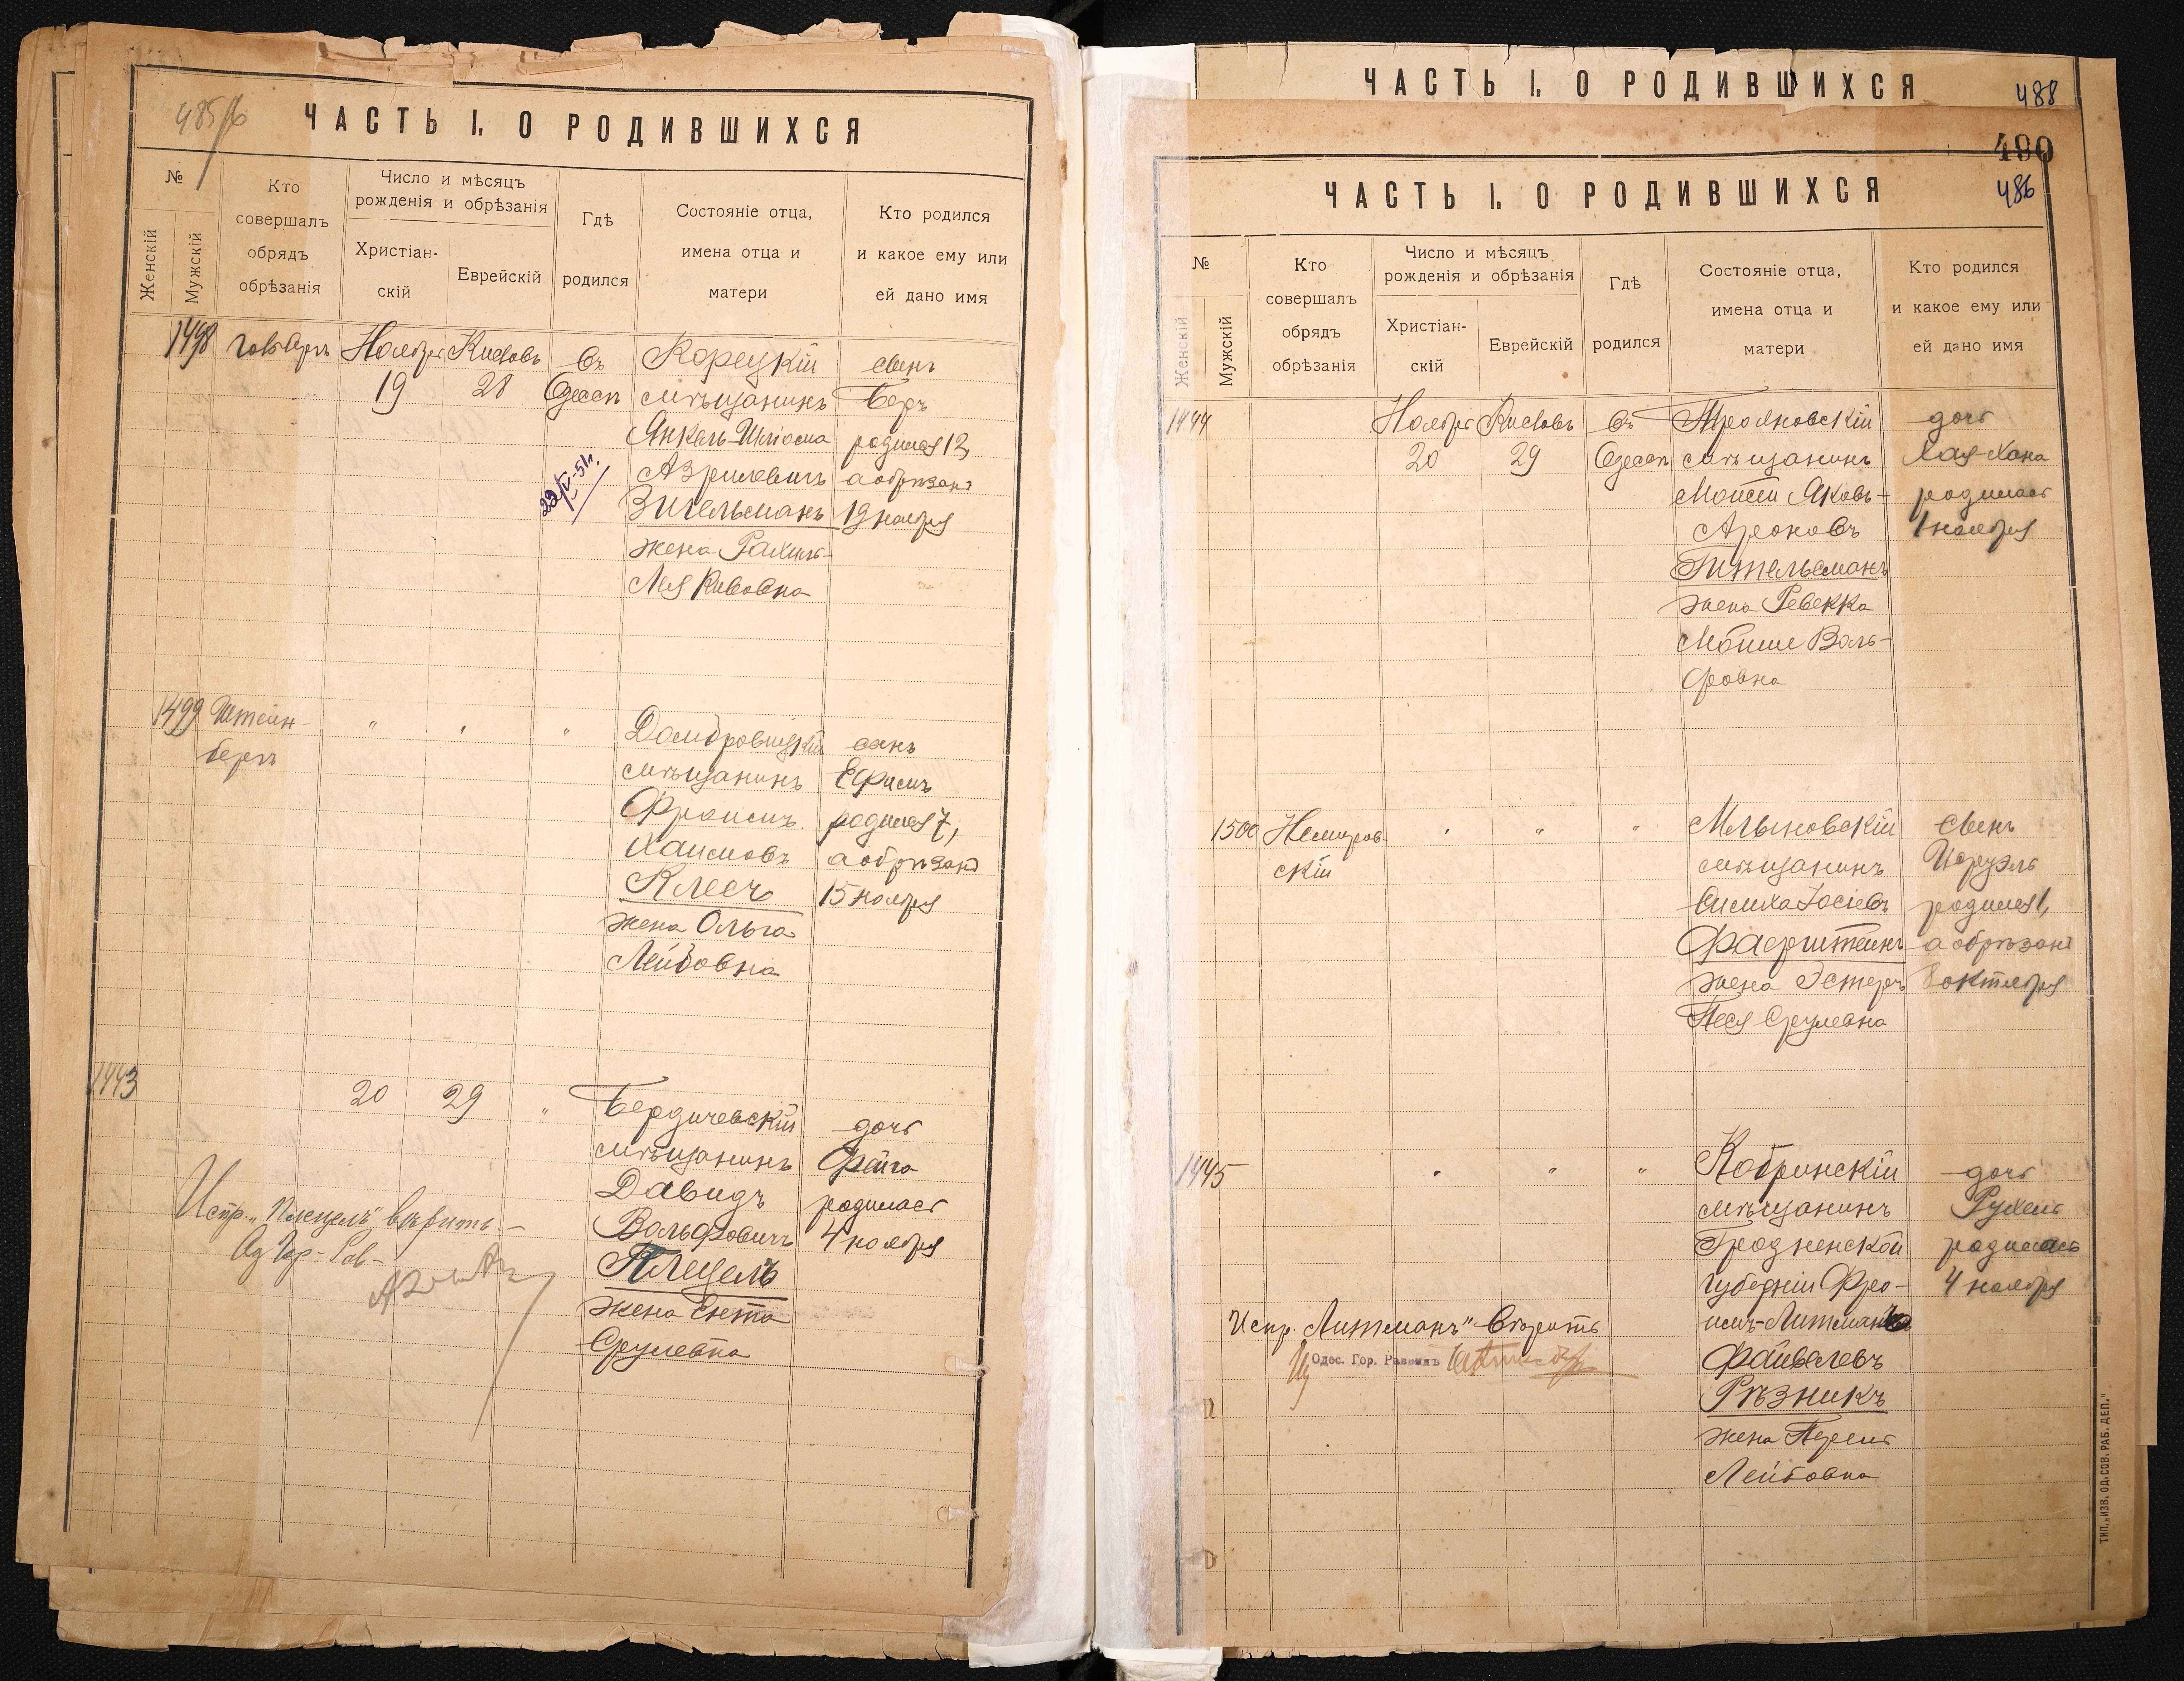 485/б
ЧАСТЬ I. О РОДИВШИХСЯ
№
Женскій
Мужскій
Кто
совершалъ
обрядъ
обрѣзанія
Число и мѣсяцъ
рожденія и обрѣзанія
Христіан-
скій
Еврейскій
Гдѣ
родился
Состояніе отца,
имена отца и
матери
Кто родился
и какое ему или
ей дано имя
1498
Ноября
19
Кислевъ
28
въ
Одессѣ
Корецкій
мѣщанинъ
Янкель-Шліома
Азрилевичъ
Зигельманъ
жена Рахиль-
Лея Кивовна
сынъ
Беръ
родился 12,
а обрѣзанъ
19 ноября
22/V-51г.
1499
Штейн-
бергъ
"
"
"
Домбровицкій
мѣщанинъ
Фроимъ
Хаимовъ
Клесъ
жена Ольга
Лейбовна
сынъ
Ефимъ
родился 7,
а обрѣзанъ
15 ноября
1443
20
29
"
Бердичевскій
мѣщанинъ
Давидъ
Вольфовичъ
Плецелъ
жена Ента
Срулевна
дочь
Фейга
родилась
4 ноября
Испр. „Плецелъ" вѣрить. -
Од Гор- Рав-
ЧАСТЬ I. О РОДИВШИХСЯ
488
490
ЧАСТЬ I. О РОДИВШИХСЯ
486
№
Женскій
Мужскій
Кто
совершалъ
обрядъ
обрѣзанія
Число и мѣсяцъ
рожденія и обрѣзанія
Христіан-
скій
Еврейскій
Гдѣ
родился
Состояніе отца,
имена отца и
матери
Кто родился
и какое ему или
ей дано имя
1444
Ноября
20
Кислевъ
29
въ
Одессѣ
Трояновскій
мѣщанинъ
Мойсей Яковъ-
Ароновъ
Гительманъ
жена Ревекка
Мойше Воль-
фовна
дочь
Хая-Хана
родилась
1 ноября
1500
Немиров-
скій
"
"
"
Млыновскій
мѣщанинъ
Симха Іосіевъ
Фаерштейнъ
жена Эстеръ
Песя Срулевна
сынъ
Исруэль
родился 1,
а обрѣзанъ
8 октября
1445
"
"
"
Кобринскій
мѣщанинъ
Гродненской
губерніи Фро-
имъ-Литманъ
Файвелевъ
Рѣзникъ
жена Перель
Лейбовна
дочь
Рухель
родилась
4 ноября
Испр. „Литманъ" - вѣрить
Одес. Гор. Раввинъ
ТИП. „ИЗВ. ОД. СОВ. РАБ. ДЕП."